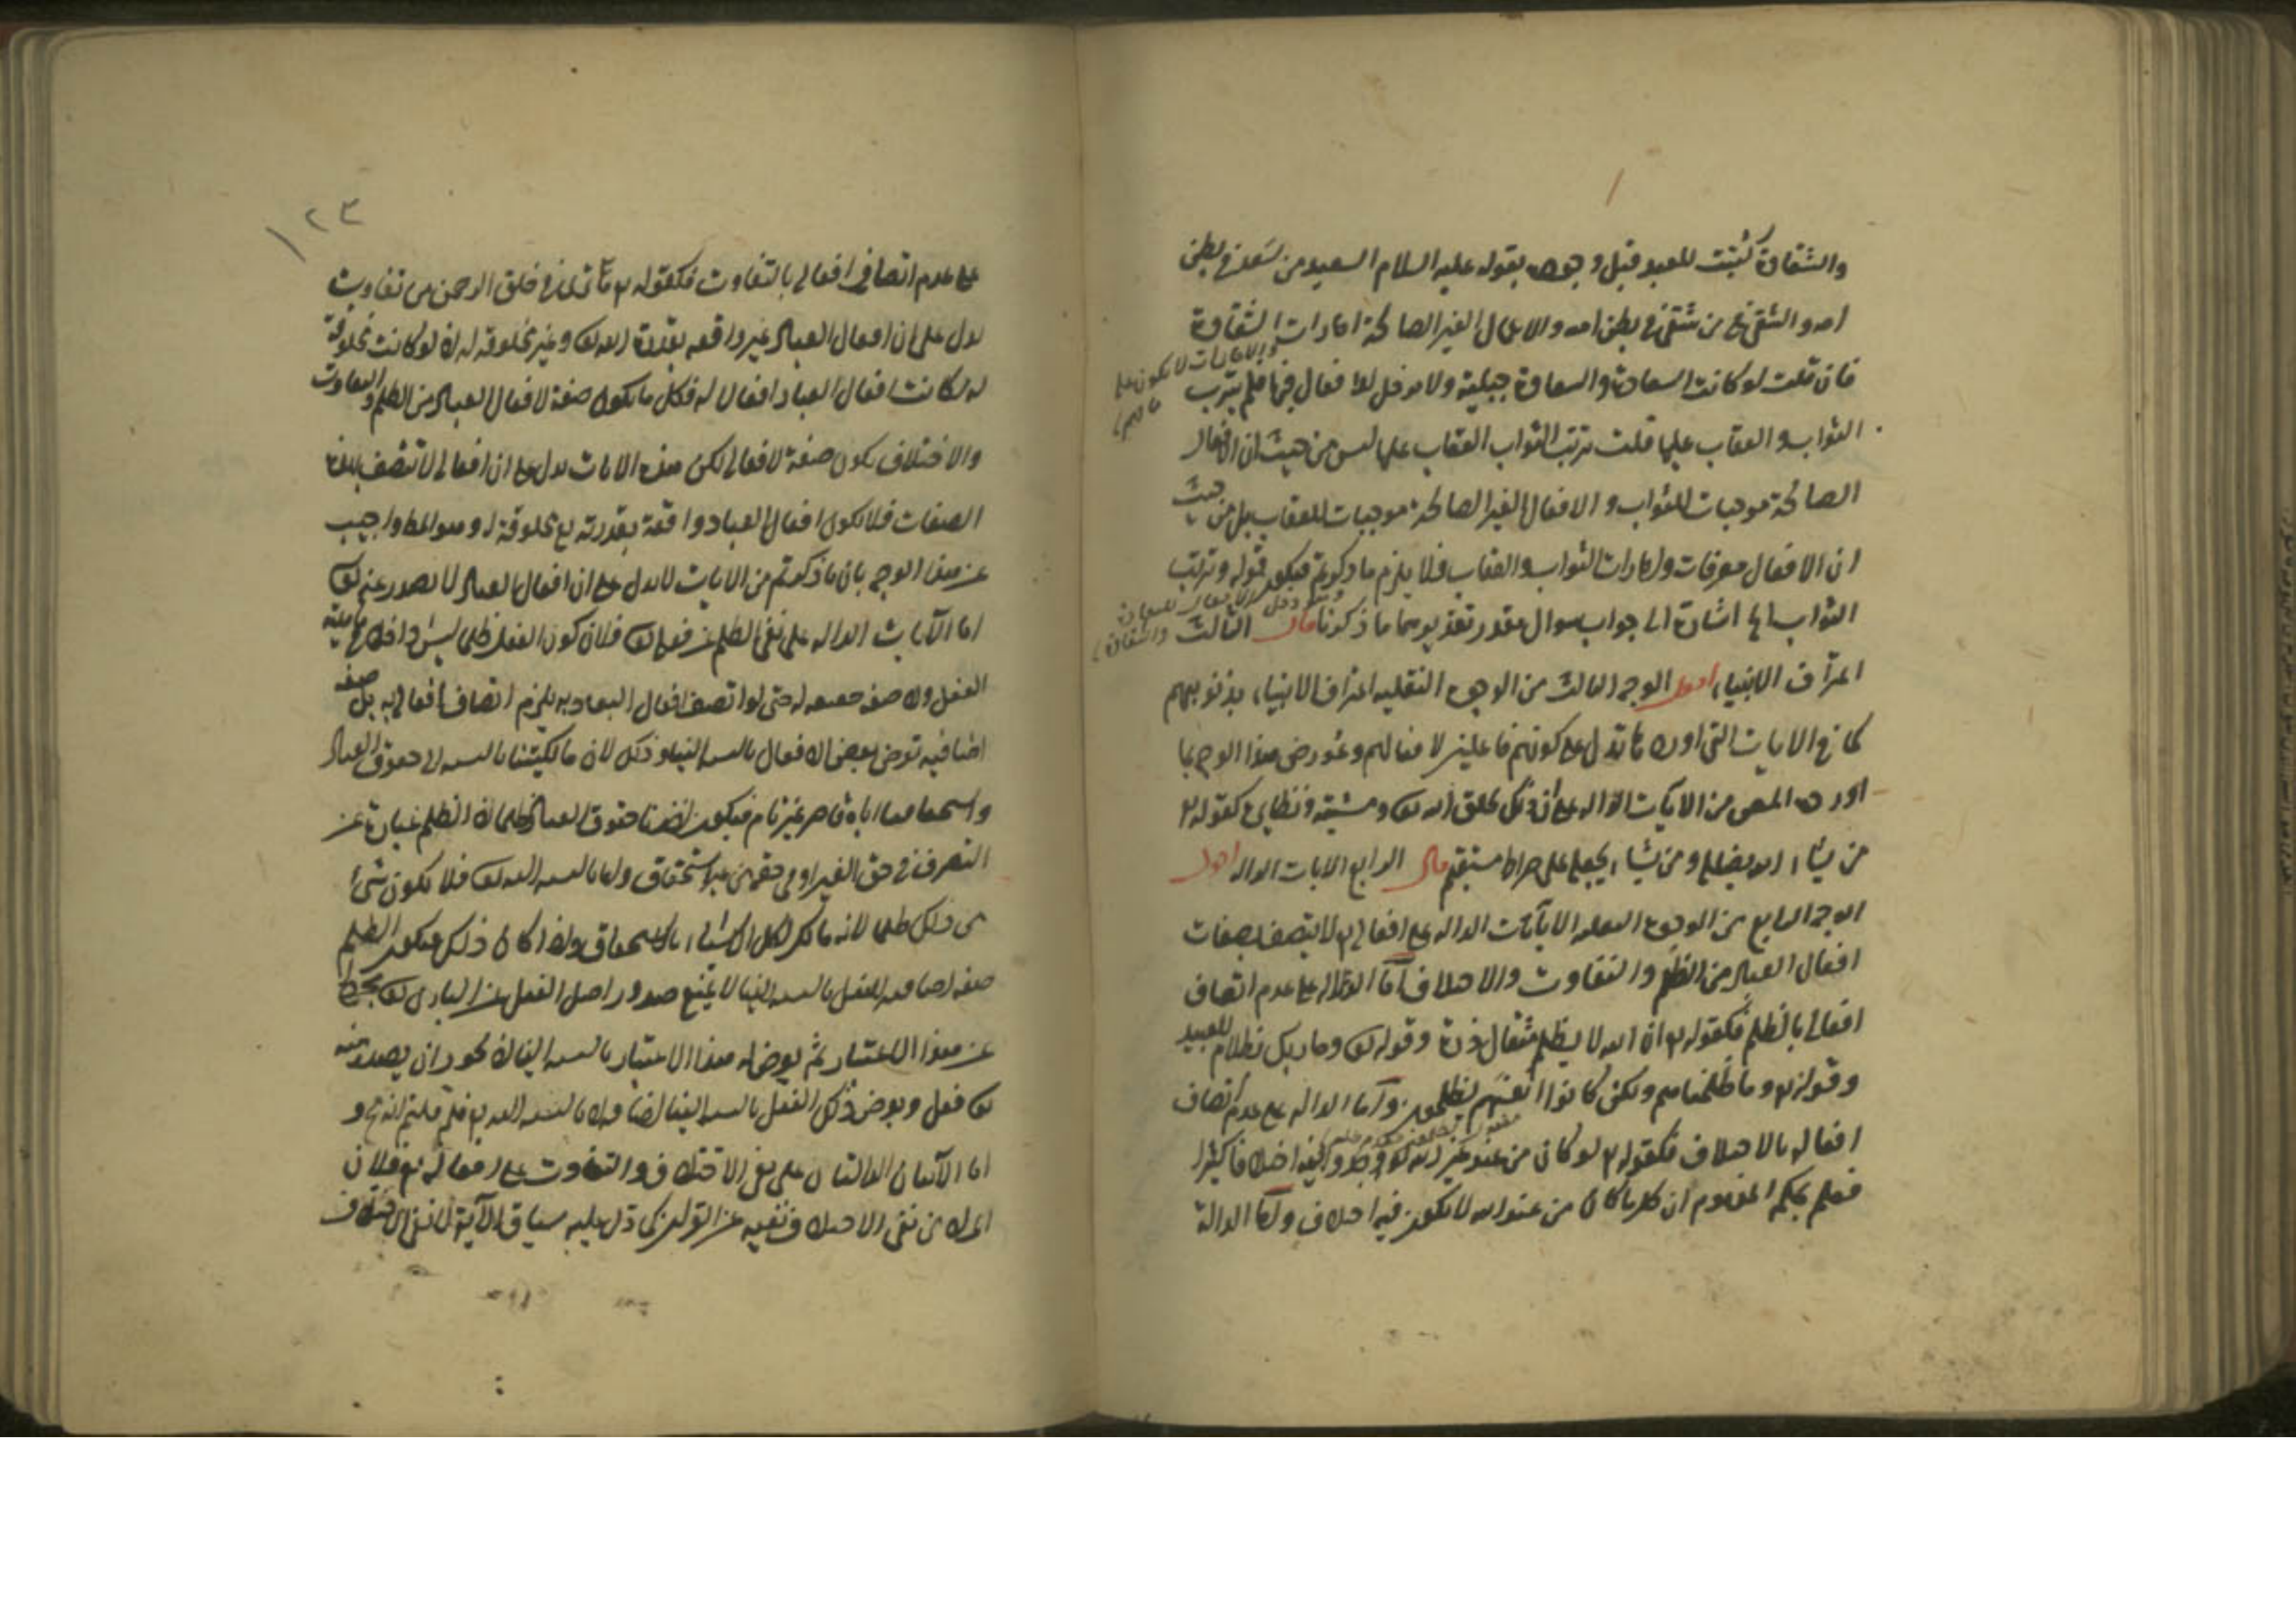 والشقاوة كتبت للعبد قبل وجوده بقوله عليه السلام السعيد من سعد في بطن
امه والشقي من شقي في بطن امه والاعمال الغير الصالحة امارات الشقاوة
فان قلت لو كانت السعادة والسعاوة جبلية ولا مدخل للافعال فيها فلم يترتب
الثواب والعقاب عليها قلت ترتب الثواب العقاب عليها ليس من حيث ان الافعال
الصالحة موجبات للثواب والافعال الغير الصالحة موجبات للعقاب بل من حيث
ان الافعال معرفات وامارات الثواب والعقاب فلا يلزم ما ذكرتم فيكون قوله وترتب
الثواب اشارة الى جواب سوال مقدر تقديرهما ما ذكرنا قال الثالث
اعتراف الانبياء اقول الوجه الثالث من الوجوه النقليه اعتراف الانبياء بذنوبهم
كما في الايات التي اورد ها تدل على كونهم فاعلين لافعالهم وعورض هذا الوجه بما
اورده المص من الآيات الدالة على ان ذلك بخلق الله تعالى ومشيته ونظايره كقوله
من يشاء الله يضلله ومن يشاء يجعله على صراط مستقيم قال الرابع الايات الدالة اقول
الوجه الرابع من الوجوه النقلية الآيات الدالة على افعاله لا يتصف بصفات
افعال العباد من الظلم والتفاوت والاختلاف اما الدالة على عدم اتصاف
افعاله بالظلم فكقوله ان الله لا يظلم مثقال ذرة وقوله تعالى وما ربك بظلام للعبيد
وقوله وما ظلمناهم ولكن كانوا انفسهم يظلمون واما الدالة على عدم اتصاف
افعاله بالاختلاف فكقوله لو كان من عند غير الله لوجدوا فيه اختلافا كثيرا
فعلم بحكم المفهوم ان كل ما كان من عند الله لا يكون فيه اختلاف واما الدالة
١٢٣
على عدم اتصاف افعاله بالتفاوت فكقوله ما ترى في خلق الرحمن من تفاوت
يدل على ان افعال العباد غير واقعه بقدرة الله تعالى وغير مخلوقه له اذ لو كانت مخلوقة
له لكانت افعال العباد افعالا له فكل ما يكون صفة لافعال العباد من الظلم والتفاوت
والاختلاف يكون صفة لافعاله لكن هذه الايات تدل على ان افعاله لا تتصف بهذه
الصفات فلا يكون افعال العباد واقعة بقدرته مخلوقة له وهو المط واجيب
عن هذا الوجه بان ما ذكرتم من الايات لا يدل على ان افعال العباد لا يصدر عنه تعالى
اما الآيات الدالة على نفي الظلم عن فعله تعالى فلان كون الفعل ظلما ليس داخلا في ماهية
الفعل ولا صفة حقيقية له حتى لو اتصف افعال العباد به يلزم اتصاف افعاله به بل صفة
اضافيه تعرض بعض الافعال بالنسبة الينا وذلك لان مالكيتنا بالنسبة الى حقوق العباد
واستحقاقنا اياه قاصر غير تام فيكون تصرفنا حقوق العباد ظلما اذ الظلم عبارة عن
التصرف في حق الغير او في حقه من غير استحقاق واما بالنسبة الى الله تعالى فلا يكون شئ
من ذلك ظلما لانه مالك لكل الاشياء بالاستحقاق واذا كان ذلك فيكون الظلم
صفة اضافية للفعل بالنسبة الينا لا يمنع صدور اصل الفعل عن الباري تعالى مجردا
عن هذا الاعتبار ثم يعرض له هذا الاعتبار بالنسبة الينا اذ يجوز ان يصدر منه
تعالى فعل ويعرض ذلك الفعل بالنسبة الينا بالنسبة الى الله فلم قلتم
اما الآيتان الدالتان على نفي الاختلاف والتفاوت على افعاله فلان
المراد من نفي الاختلاف نفيه عن القرآن كما دل عليه سياق الآية لا نفي الاختلاف